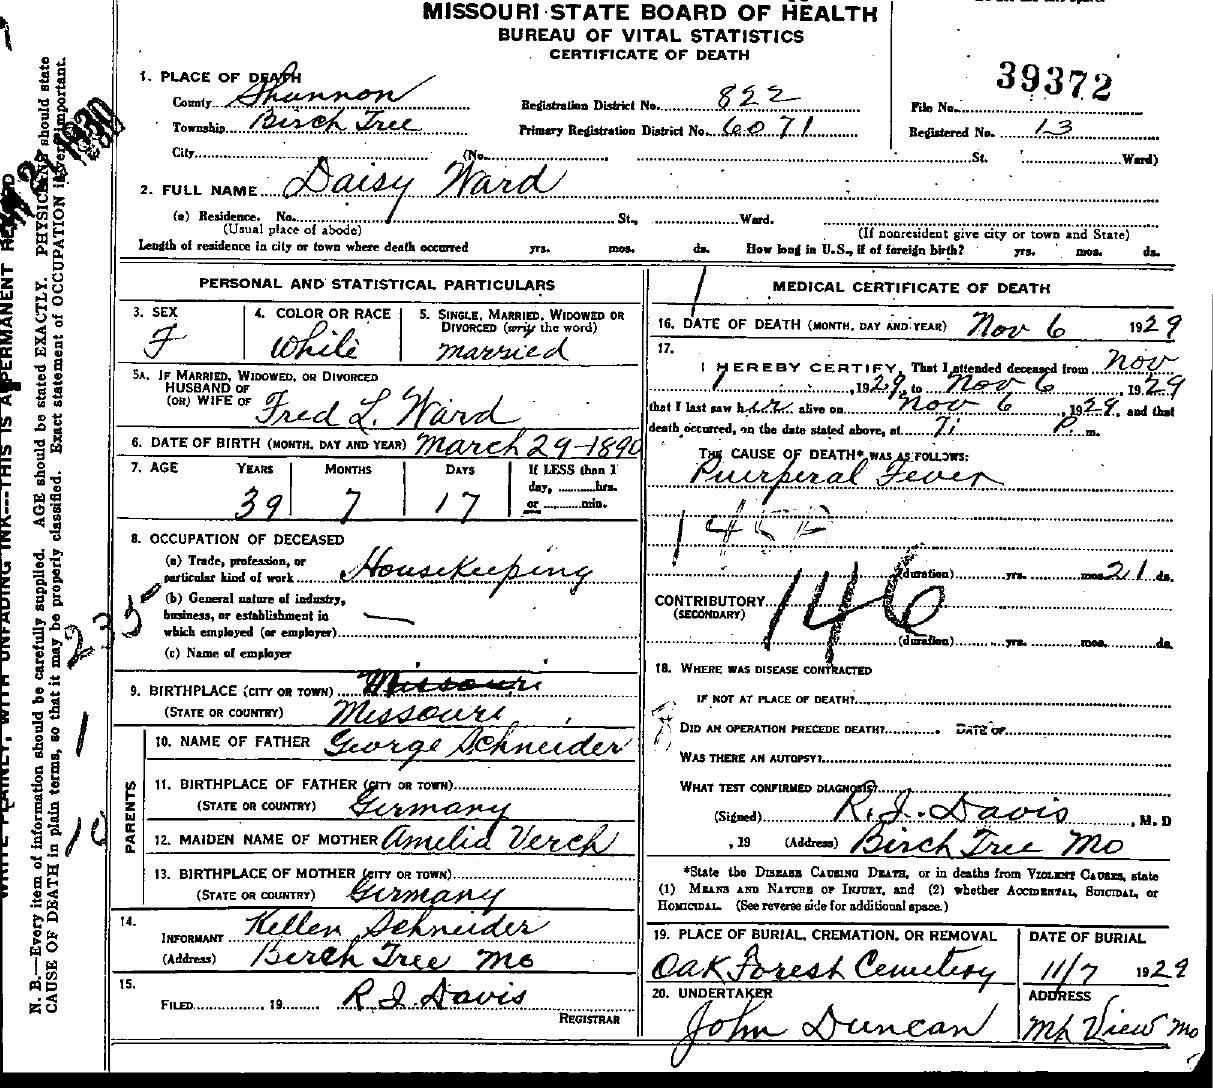 MISSOURI STATE BOARD OF HEALTH
BUREAU OF VITAL STATISTICS
CERTIFICATE OF DEATH
39372
1. PLACE OF DEATH
County Shannon Registration District No. 822 File No.
Township Birch Tree Primary Registration District No. 6071 Registered No. 13
City (No. St. Ward)
2. FULL NAME Daisy Ward
(a) Residence. No. St., Ward.
(Usual place of abode) (If nonresident give city or town and State)
Length of residence in city or town where death occurred yrs. mos. ds. How long in U.S., if of foreign birth? yrs. mos. ds.
PERSONAL AND STATISTICAL PARTICULARS
3. SEX 4. COLOR OR RACE 5. SINGLE, MARRIED, WIDOWED OR
DIVORCED (write the word)
F White married
5A. IF MARRIED, WIDOWED, OR DIVORCED
HUSBAND OF
(OR) WIFE OF Fred L. Ward
6. DATE OF BIRTH (MONTH, DAY AND YEAR) March 29-1890
7. AGE YEARS MONTHS DAYS If LESS than 1
day, hrs.
or min.
39 7 17
8. OCCUPATION OF DECEASED
(a) Trade, profession, or
particular kind of work Housekeeping
(b) General nature of industry,
business, or establishment in
which employed (or employer)
(c) Name of employer
9. BIRTHPLACE (CITY OR TOWN) Missouri
(STATE OR COUNTRY) Missouri
PARENTS
10. NAME OF FATHER George Schneider
11. BIRTHPLACE OF FATHER (CITY OR TOWN)
(STATE OR COUNTRY) Germany
12. MAIDEN NAME OF MOTHER Amelia Verch
13. BIRTHPLACE OF MOTHER (CITY OR TOWN)
(STATE OR COUNTRY) Germany
14. INFORMANT Kellen Schneider
(Address) Birch Tree Mo
15. FILED , 19 R I Davis
REGISTRAR
MEDICAL CERTIFICATE OF DEATH
16. DATE OF DEATH (MONTH, DAY AND YEAR) Nov 6 1929
17.
I HEREBY CERTIFY, That I attended deceased from Nov
1, 1929, to Nov 6, 1929
that I last saw her alive on Nov 6, 1929, and that
death occurred, on the date stated above, at 7: P. m.
THE CAUSE OF DEATH* WAS AS FOLLOWS:
Puerperal Fever
146
(duration) yrs. mos. 21 ds.
CONTRIBUTORY
(SECONDARY)
(duration) yrs. mos. ds.
18. WHERE WAS DISEASE CONTRACTED
IF NOT AT PLACE OF DEATH?
DID AN OPERATION PRECEDE DEATH? DATE OF
WAS THERE AN AUTOPSY?
WHAT TEST CONFIRMED DIAGNOSIS?
(Signed) R. I. Davis, M. D
, 19 (Address) Birch Tree Mo
*State the DISEASE CAUSING DEATH, or in deaths from VIOLENT CAUSES, state
(1) MEANS AND NATURE OF INJURY, and (2) whether ACCIDENTAL, SUICIDAL, or
HOMICIDAL. (See reverse side for additional space.)
19. PLACE OF BURIAL, CREMATION, OR REMOVAL DATE OF BURIAL
Oak Forest Cemetery 11/7 1929
20. UNDERTAKER ADDRESS
John Duncan Mt View Mo
WRITE PLAINLY, WITH UNFADING INK---THIS IS A PERMANENT RECORD
N. B.—Every item of information should be carefully supplied. AGE should be stated EXACTLY. PHYSICIANS should state
CAUSE OF DEATH in plain terms, so that it may be properly classified. Exact statement of OCCUPATION is very important.
1930
235
1
10